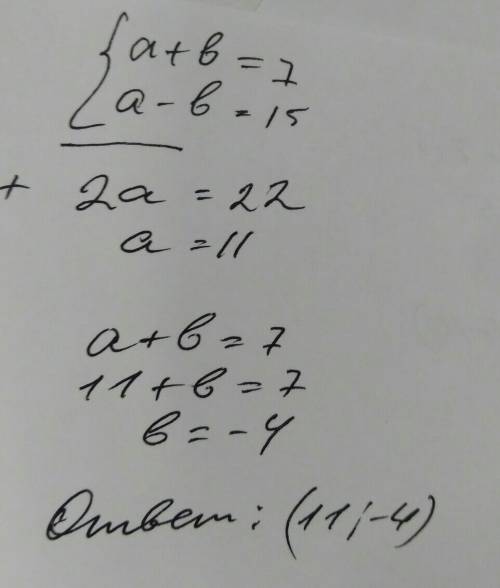 {a + в = 7
a - в = 15
+ 2a = 22
a = 11
a + в = 7
11 + в = 7
в = -4
Ответ: (11; -4)